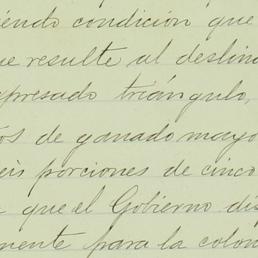 iendo condición que
ue resulte al deslind
xpresado triángulo,
os de ganado mayo
eis porciones de cinco
que el Gobierno dis
mente para la colon